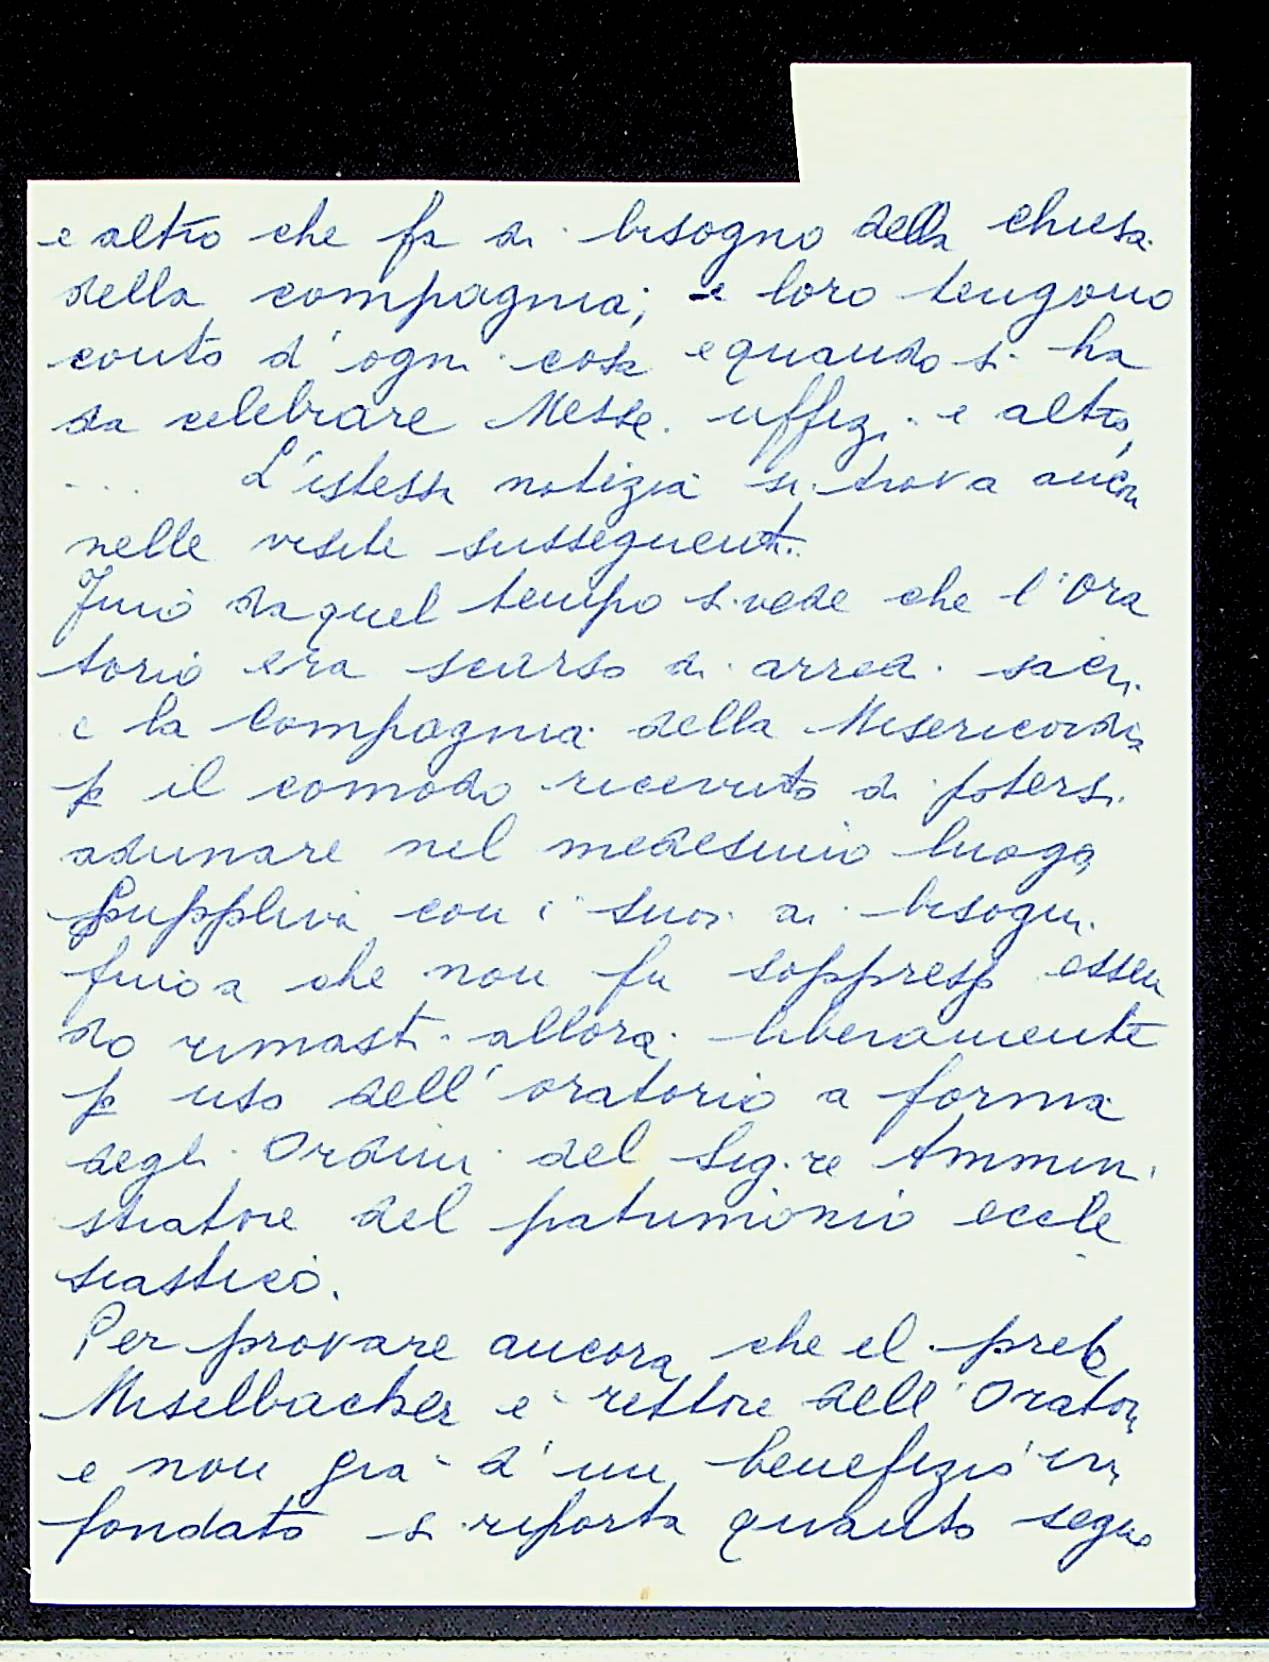 e altro che fa di bisogno della chiesa
della compagnia; e loro tengono
conto d'ogni cosa e quando si ha
da celebrare Messe uffizi e altro,
... L'istessa notizia si trova ancora
nelle visite susseguenti.
Fino da quel tempo si vede che l'Ora
torio era scarso di arredi sacri
e la Compagnia della Misericordia
p il comodo ricevuto di potersi
adunare nel medesimo luogo
suppliva con i suoi ai bisogni
fino a che non fu soppressa essen
do rimasti allora liberamente
p uso dell'oratorio a forma
degli Ordini del Sig.re Ammini
stratore del patrimonio eccle
siastico.
Per provare ancora che el prete
Miselbacher e rettore dell'Orator
e non già d'un benefizio in
fondato si riporta quanto segue